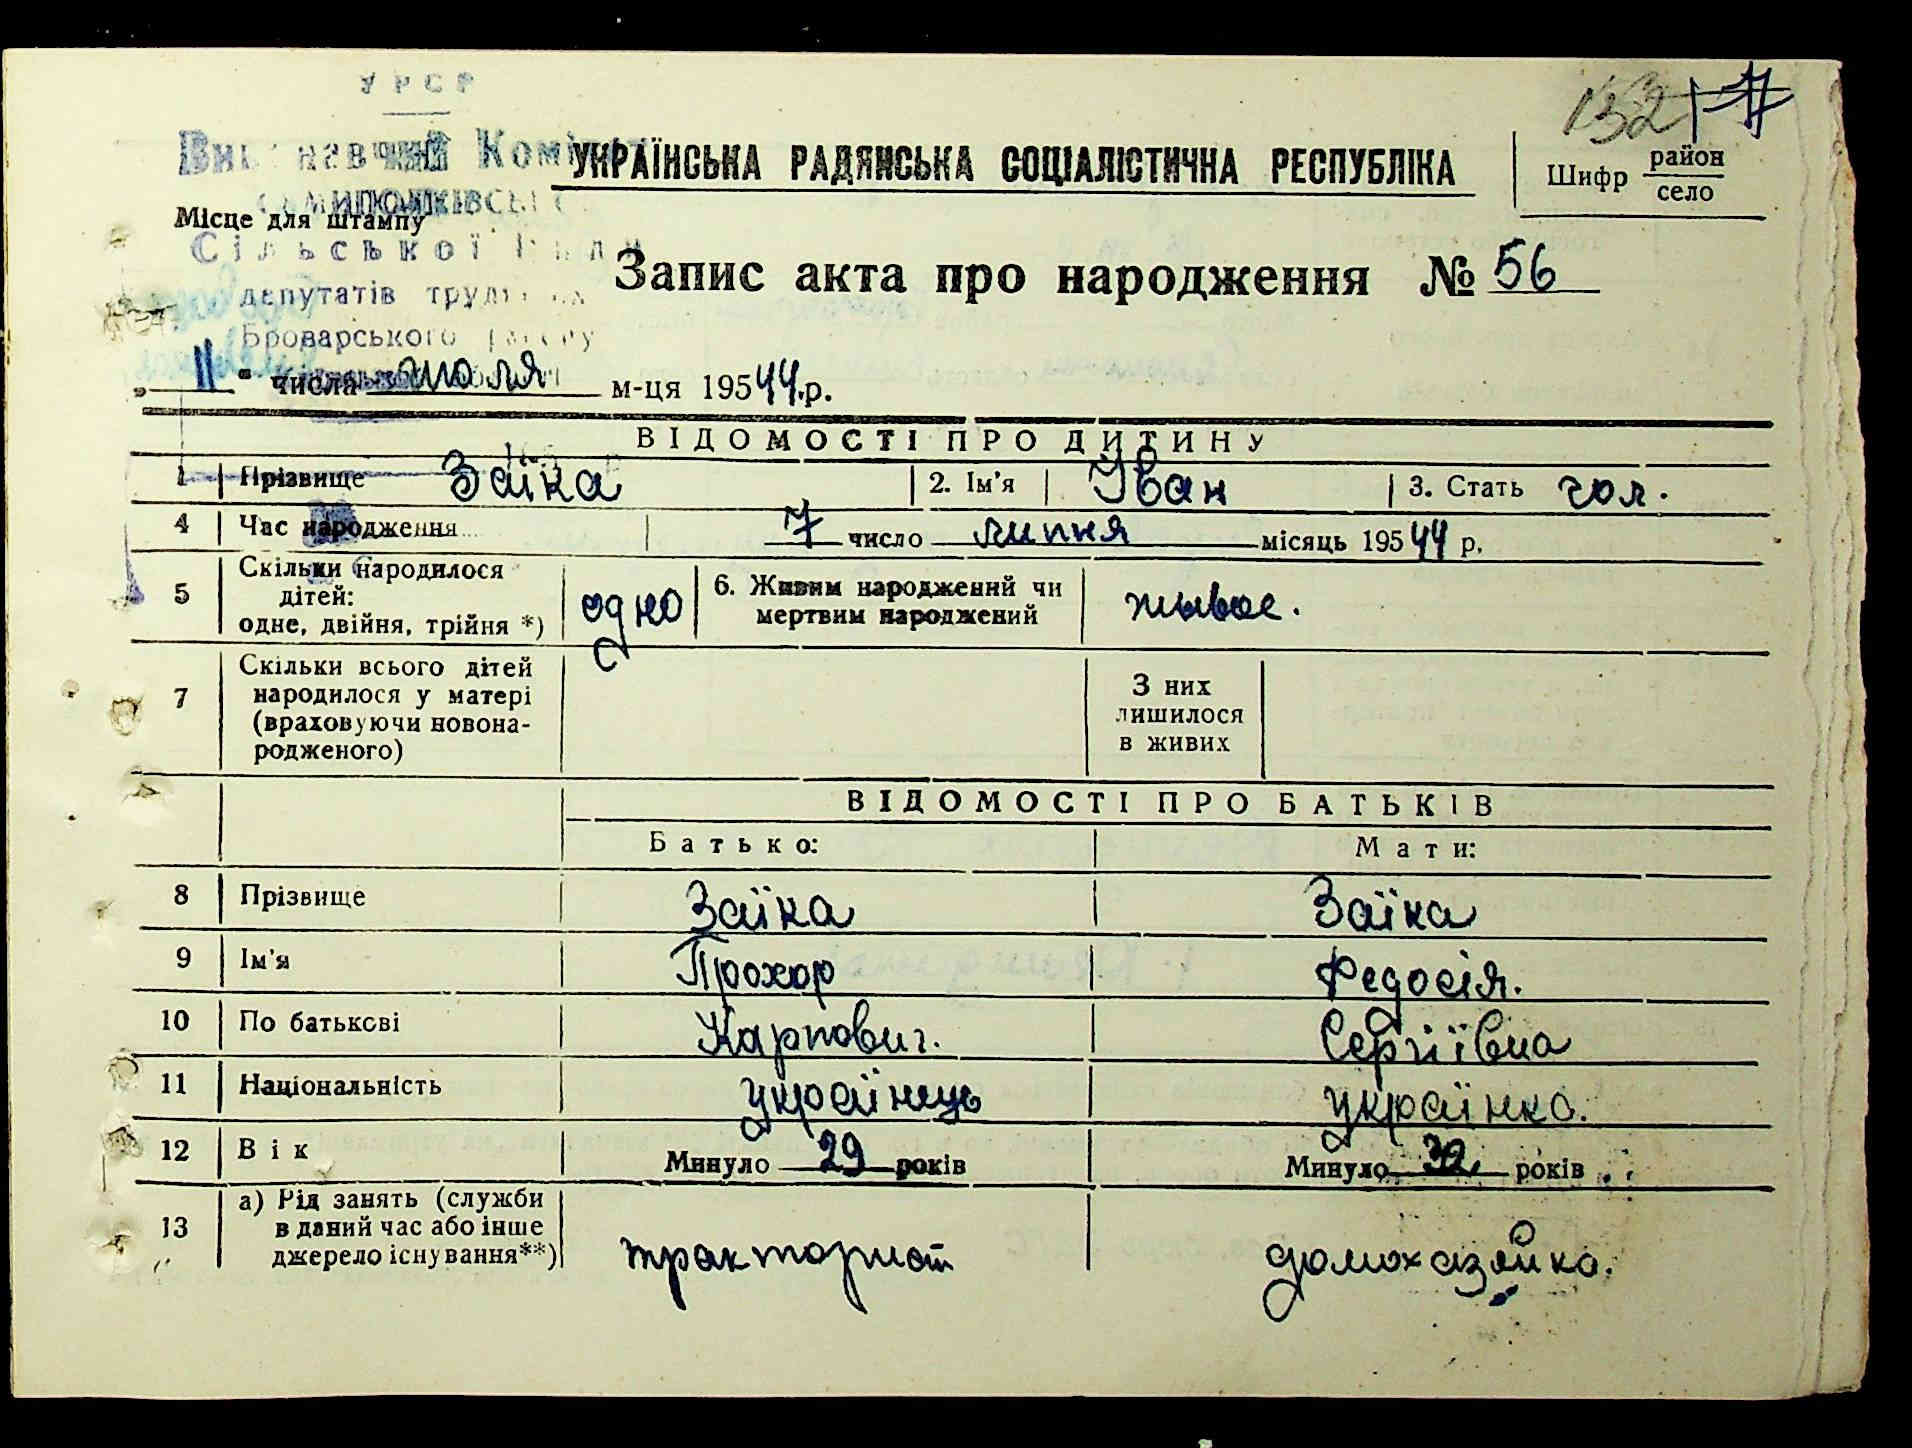 УРСР
132
Виконавчий Коміт
УКРАЇНСЬКА РАДЯНСЬКА СОЦІАЛІСТИЧНА РЕСПУБЛІКА
Шифр район
село
Місце для штампу
Сільської
депутатів
Броварського
Запис акта про народження № 56
„ 11 " числа июля м-ця 195 44.р.
ВІДОМОСТІ ПРО ДИТИНУ
1 Прізвище Заїка 2. Ім'я Іван 3. Стать чол.
4 Час народження 7 число липня місяць 195 44 р.
5 Скільки народилося дітей: одне, двійня, трійня *) одно 6. Живим народжений чи мертвим народжений живое.
7 Скільки всього дітей народилося у матері (враховуючи новона-родженого) З них лишилося в живих
ВІДОМОСТІ ПРО БАТЬКІВ
Батько: Мати:
8 Прізвище Заїка Заїка
9 Ім'я Прохор Федосія.
10 По батькові Карпович. Сергіївна
11 Національність українець українка.
12 Вік Минуло 29 років Минуло 32 років
13 а) Рід занять (служби в даний час або інше джерело існування**) тракторист домохазяйка.